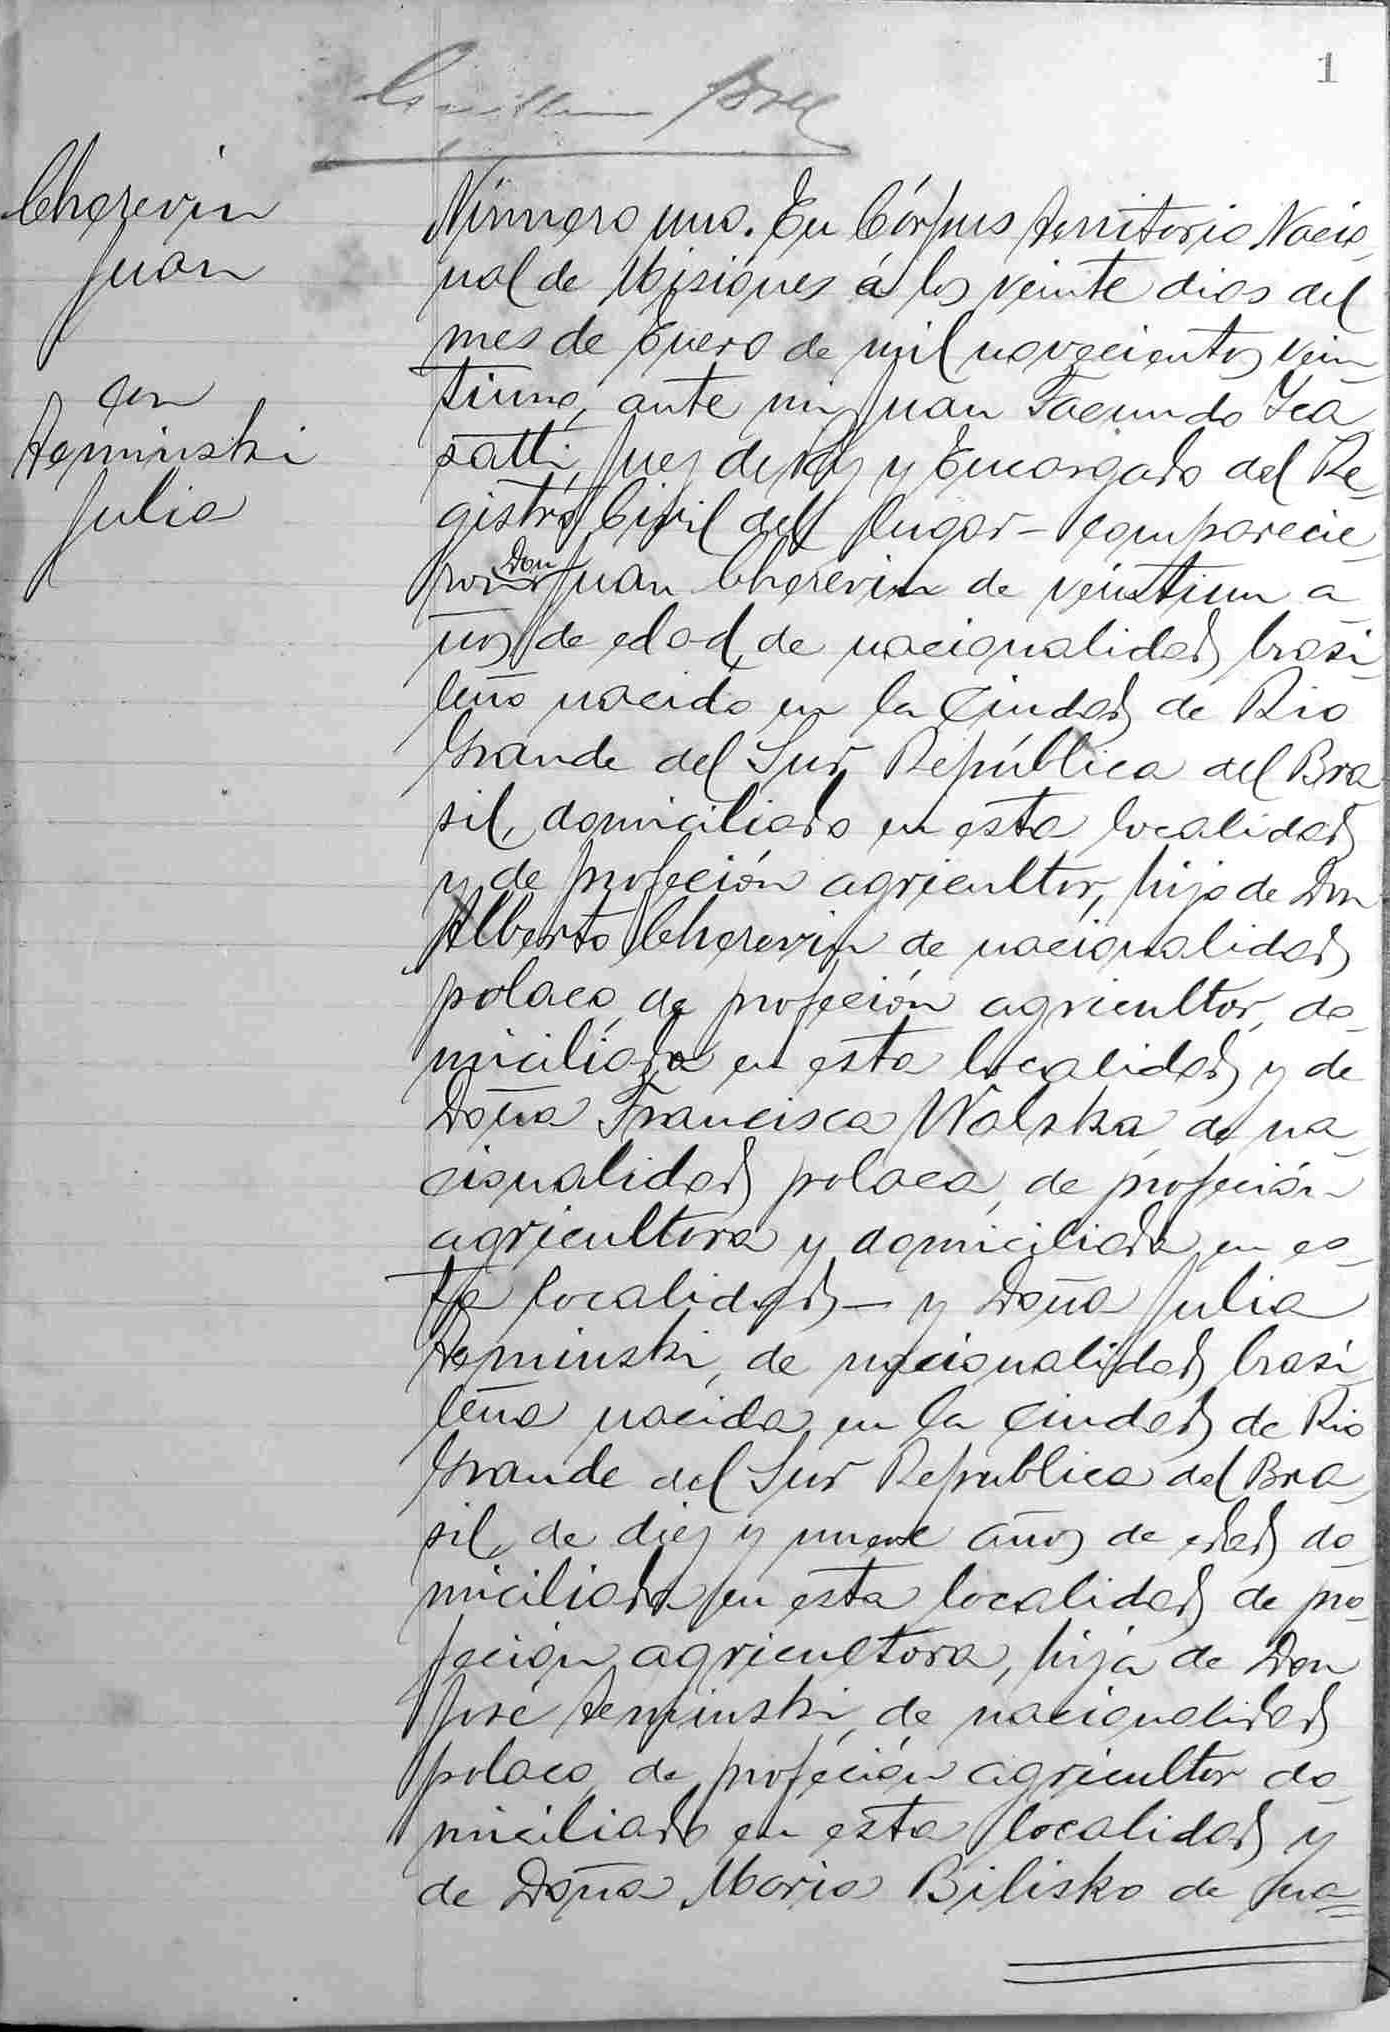 1
Cherevin
Juan
con
Aeminski
Julia
Número uno. En Córpus Territorio Nacio
nal de Misiones á los veinte dias del
mes de Enero de mil novecientos vein
tiuno, ante mi Juan Facundo
Juez de Paz y Encargado del Re
gistro Civil del lugar - comparecie
ron Don Juan Cherevin de veintiun a
ños de edad, de nacionalidad brasi
leño nacido en la Ciudad de Rio
Grande del Sur, República del Bra
sil, domiciliado en esta localidad
y de profeción agricultor, hijo de Don
Alberto Cherevin de nacionalidad
polaco, de profeción agricultor, do
miciliado en esta localidad y de
Doña Francisca Walska de na
cionalidad polaca, de profeción
agricultora y domiciliada en es
ta localidad - y Doña Julia
Aeminski, de nacionalidad brasi
leña nacida en la Ciudad de Rio
Grande del Sur Republica del Bra
sil, de diez y nueve años de edad do
miciliada en esta localidad de pro
feción agricultora, hija de Don
José Aeminski, de nacionalidad
polaco, de profeción agricultor do
miciliado en esta localidad y
de Doña Maria Bilisko de na